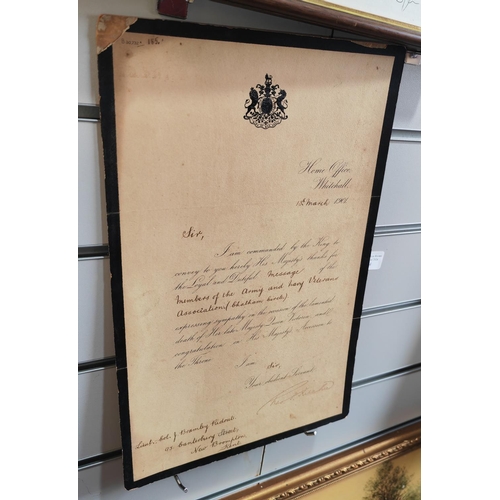 Home Office,
Whitehall,
March 1901
Sir,
I am commanded by the King to
convey to you hereby His Majesty's thanks for
the Loyal and Dutiful Message of the
Members of the Army and Navy Veterans
Association (Chatham
expressing sympathy on the occasion of the lamented
death of Her late Majesty Queen Victoria, and
congratulation on His Majesty's Accession to
the Throne
I am Sir,
Your Obedient Servant
Lieut. Col. J. Bramley
Canterbury Street,
New Brompton,
Kent